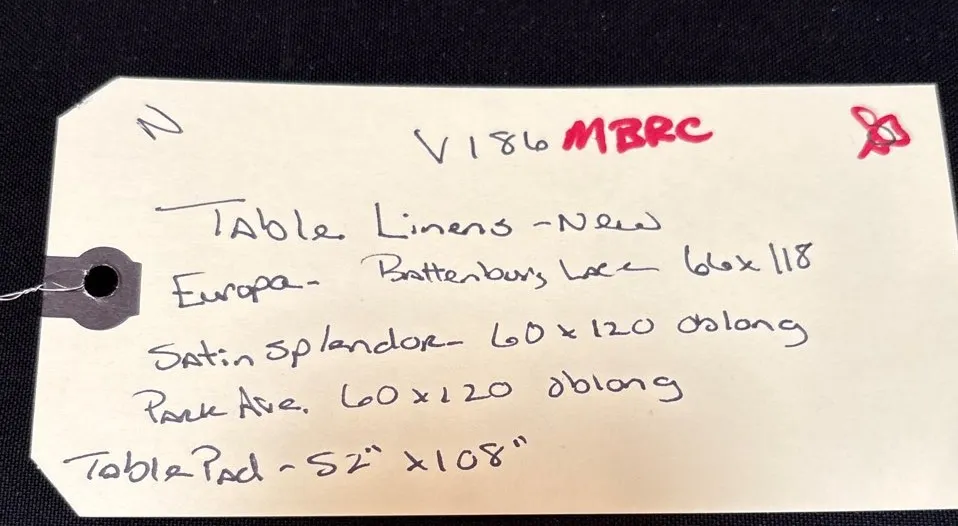 N
V186 MBRC
Table Linens - New
Europa - Battenburg Lace 66 x 118
Satin Splendor - 60 x 120 oblong
Park Ave. 60 x 120 oblong
Table Pad - 52" x 108"